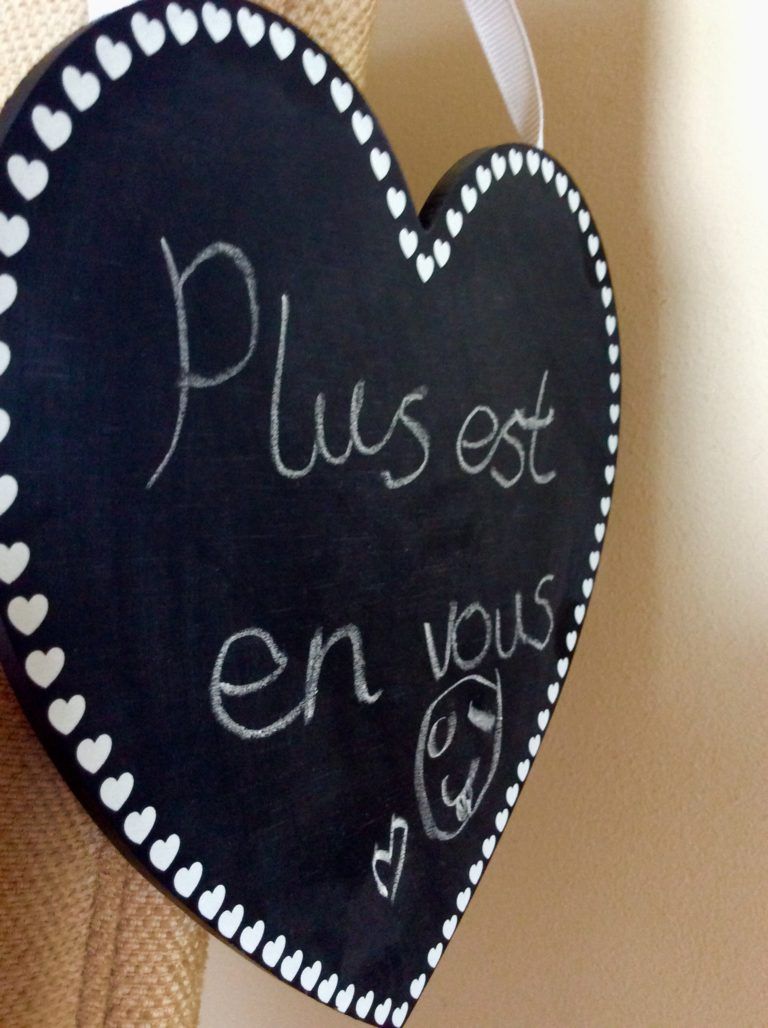 Plus est
en vous